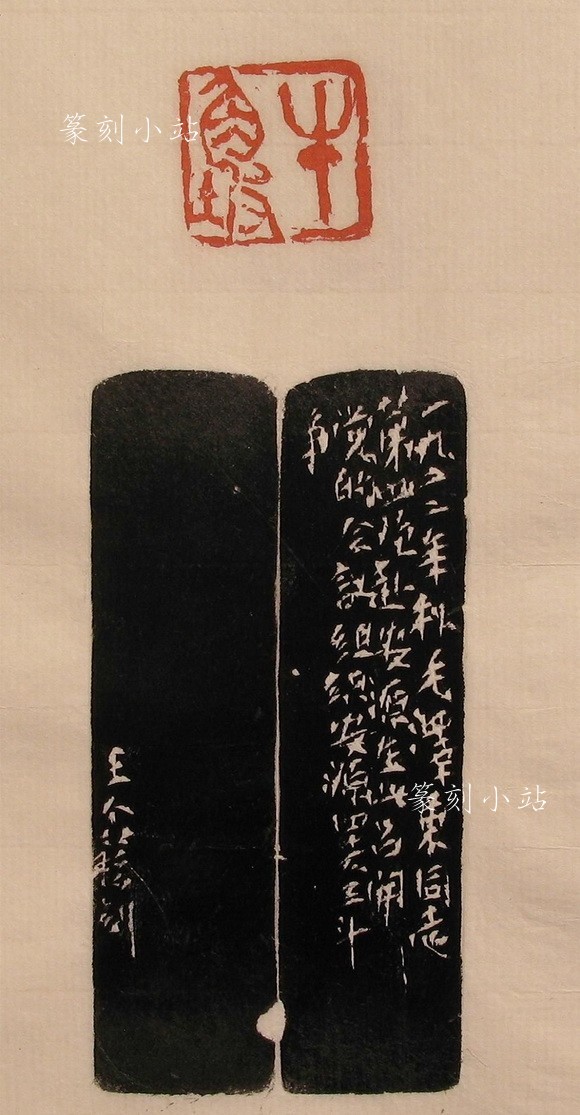 牛角坡
一九二二年秋毛泽东同志
第四次赴安源在此召开
党的会议组织安源罢工斗
争
王个簃刻
篆刻小站
篆刻小站